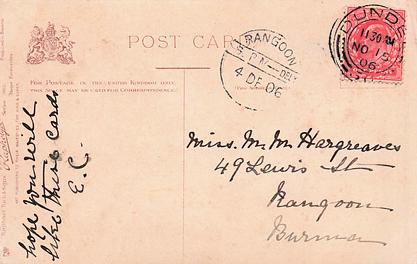 POST CARD
FOR POSTAGE IN THE UNITED KINGDOM ONLY,
THIS SPACE MAY BE USED FOR CORRESPONDENCE
RANGOON
4 DE 06
DUNDEE
11.30 AM
NO 15
06
hope you will
like these cards
E.C.
Miss. M. M. Hargreaves
49 Lewis St
Rangoon
Burma